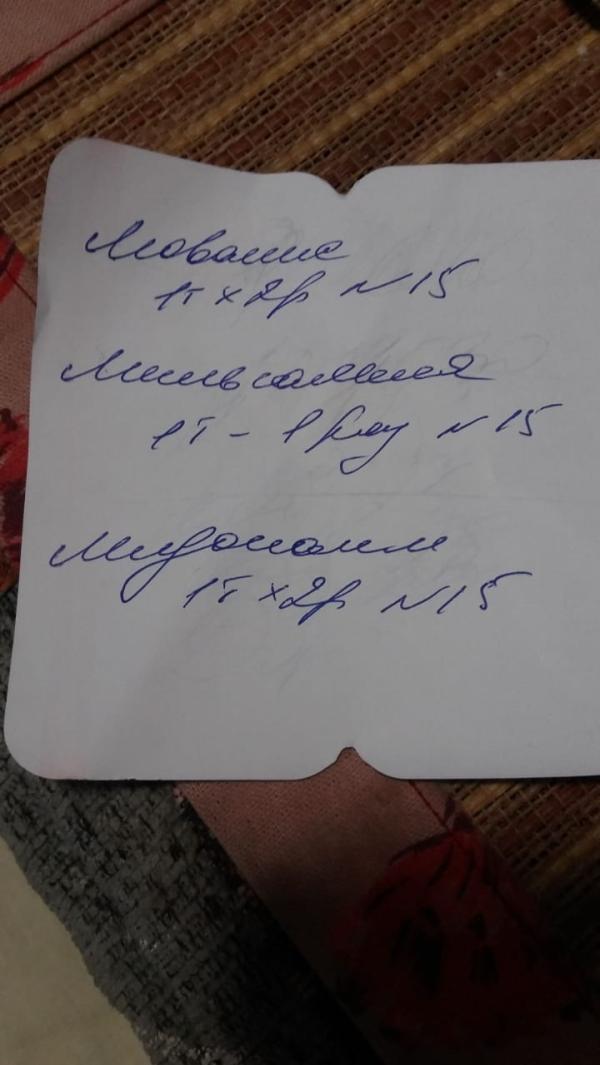 Мовалис
1т х 2р N 15
Мильгамма
1т - 1 р/су N 15
Мидокалм
1т х 2р N 15